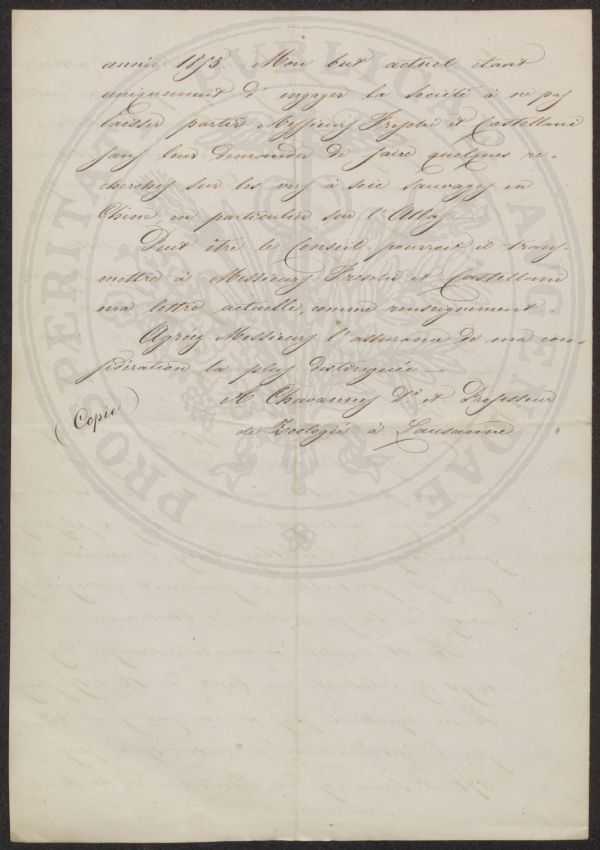 année 1855. Mon but actuel étant
uniquement d'engager la société à ne pas
laisser partir Messieurs Freschi et Castellani
sans leur demander de faire quelques re-
cherches sur les vers à soie sauvages en
Chine en particulier sur l'Atlas —
Peut être le Conseil pourroit il trans-
mettre à Messieurs Freschi et Castellani
ma lettre actuelle, comme renseignement.
Agréez Messieurs l'assurance de ma con-
sidération la plus distinguée —
A Chavannes Dr. et Professeur
de Zoologie à Lausanne
(Copie)
PROSPERITATI PUBLICAE AUGENDAE